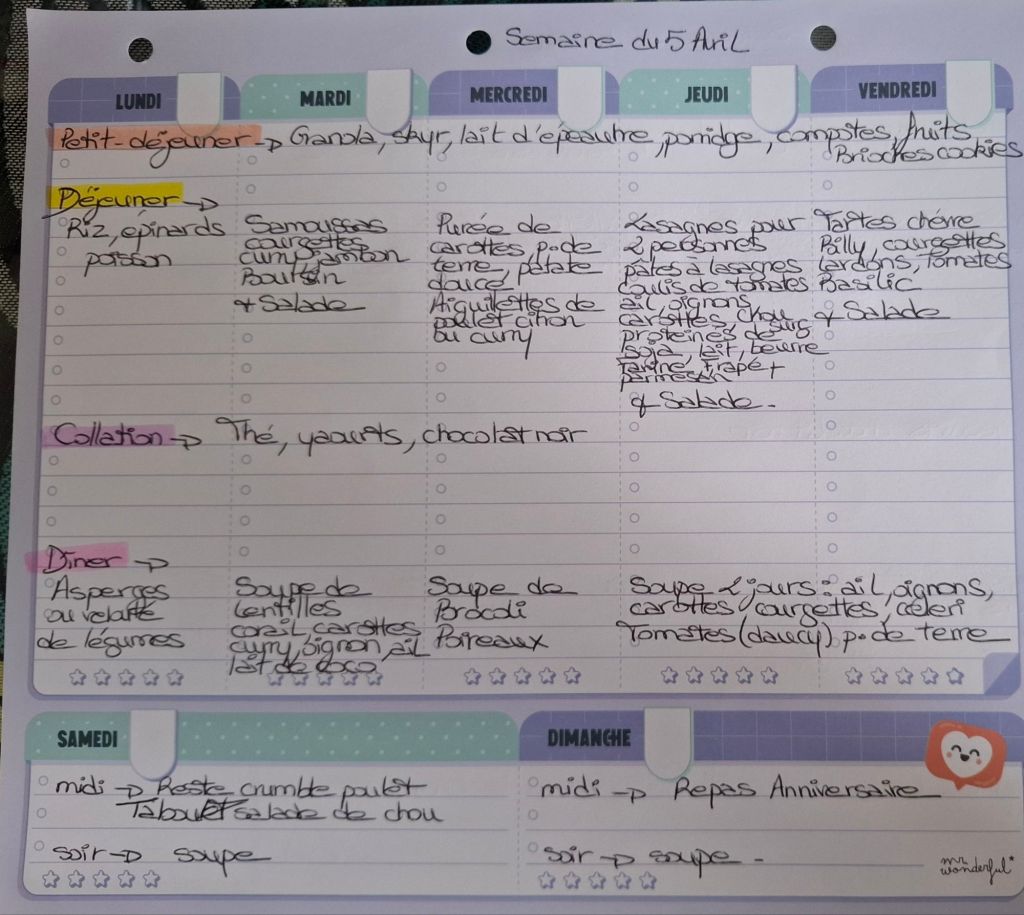 Semaine du 5 Avril
LUNDI
MARDI
MERCREDI
JEUDI
VENDREDI
Petit-déjeuner → Ganola, skyr, lait d'épeautre, porridge, compotes, fruits
Brioches cookies
Déjeuner →
Riz, épinards
poisson
Samoussas
courgettes
curry jambon
Boursin
+ Salade
Purée de
carottes p. de
terre, patate
douce
Aiguillettes de
poulet citron
ou curry
Lasagnes pour
2 personnes
pâtes à lasagnes
Coulis de tomates
ail, oignons,
carottes, chou
protéines de
soja, lait, beurre
farine, rapé +
parmesan
+ Salade.
Tartes chèvre
Philly, courgettes
lardons, Tomates
Basilic
+ Salade
Collation → Thé, yaourts, chocolat noir
Diner →
Asperges
ou velouté
de légumes
Soupe de
lentilles
corail, carottes
curry, oignon, ail
lait de coco
Soupe de
Brocoli
Poireaux
Soupe 2 jours : ail, oignons,
carottes, courgettes, céleri
Tomates (daucy) p. de terre
SAMEDI
midi → Reste crumble poulet
Taboulet salade de chou
soir → soupe
DIMANCHE
midi → Repas Anniversaire
soir → soupe -
mr wonderful*